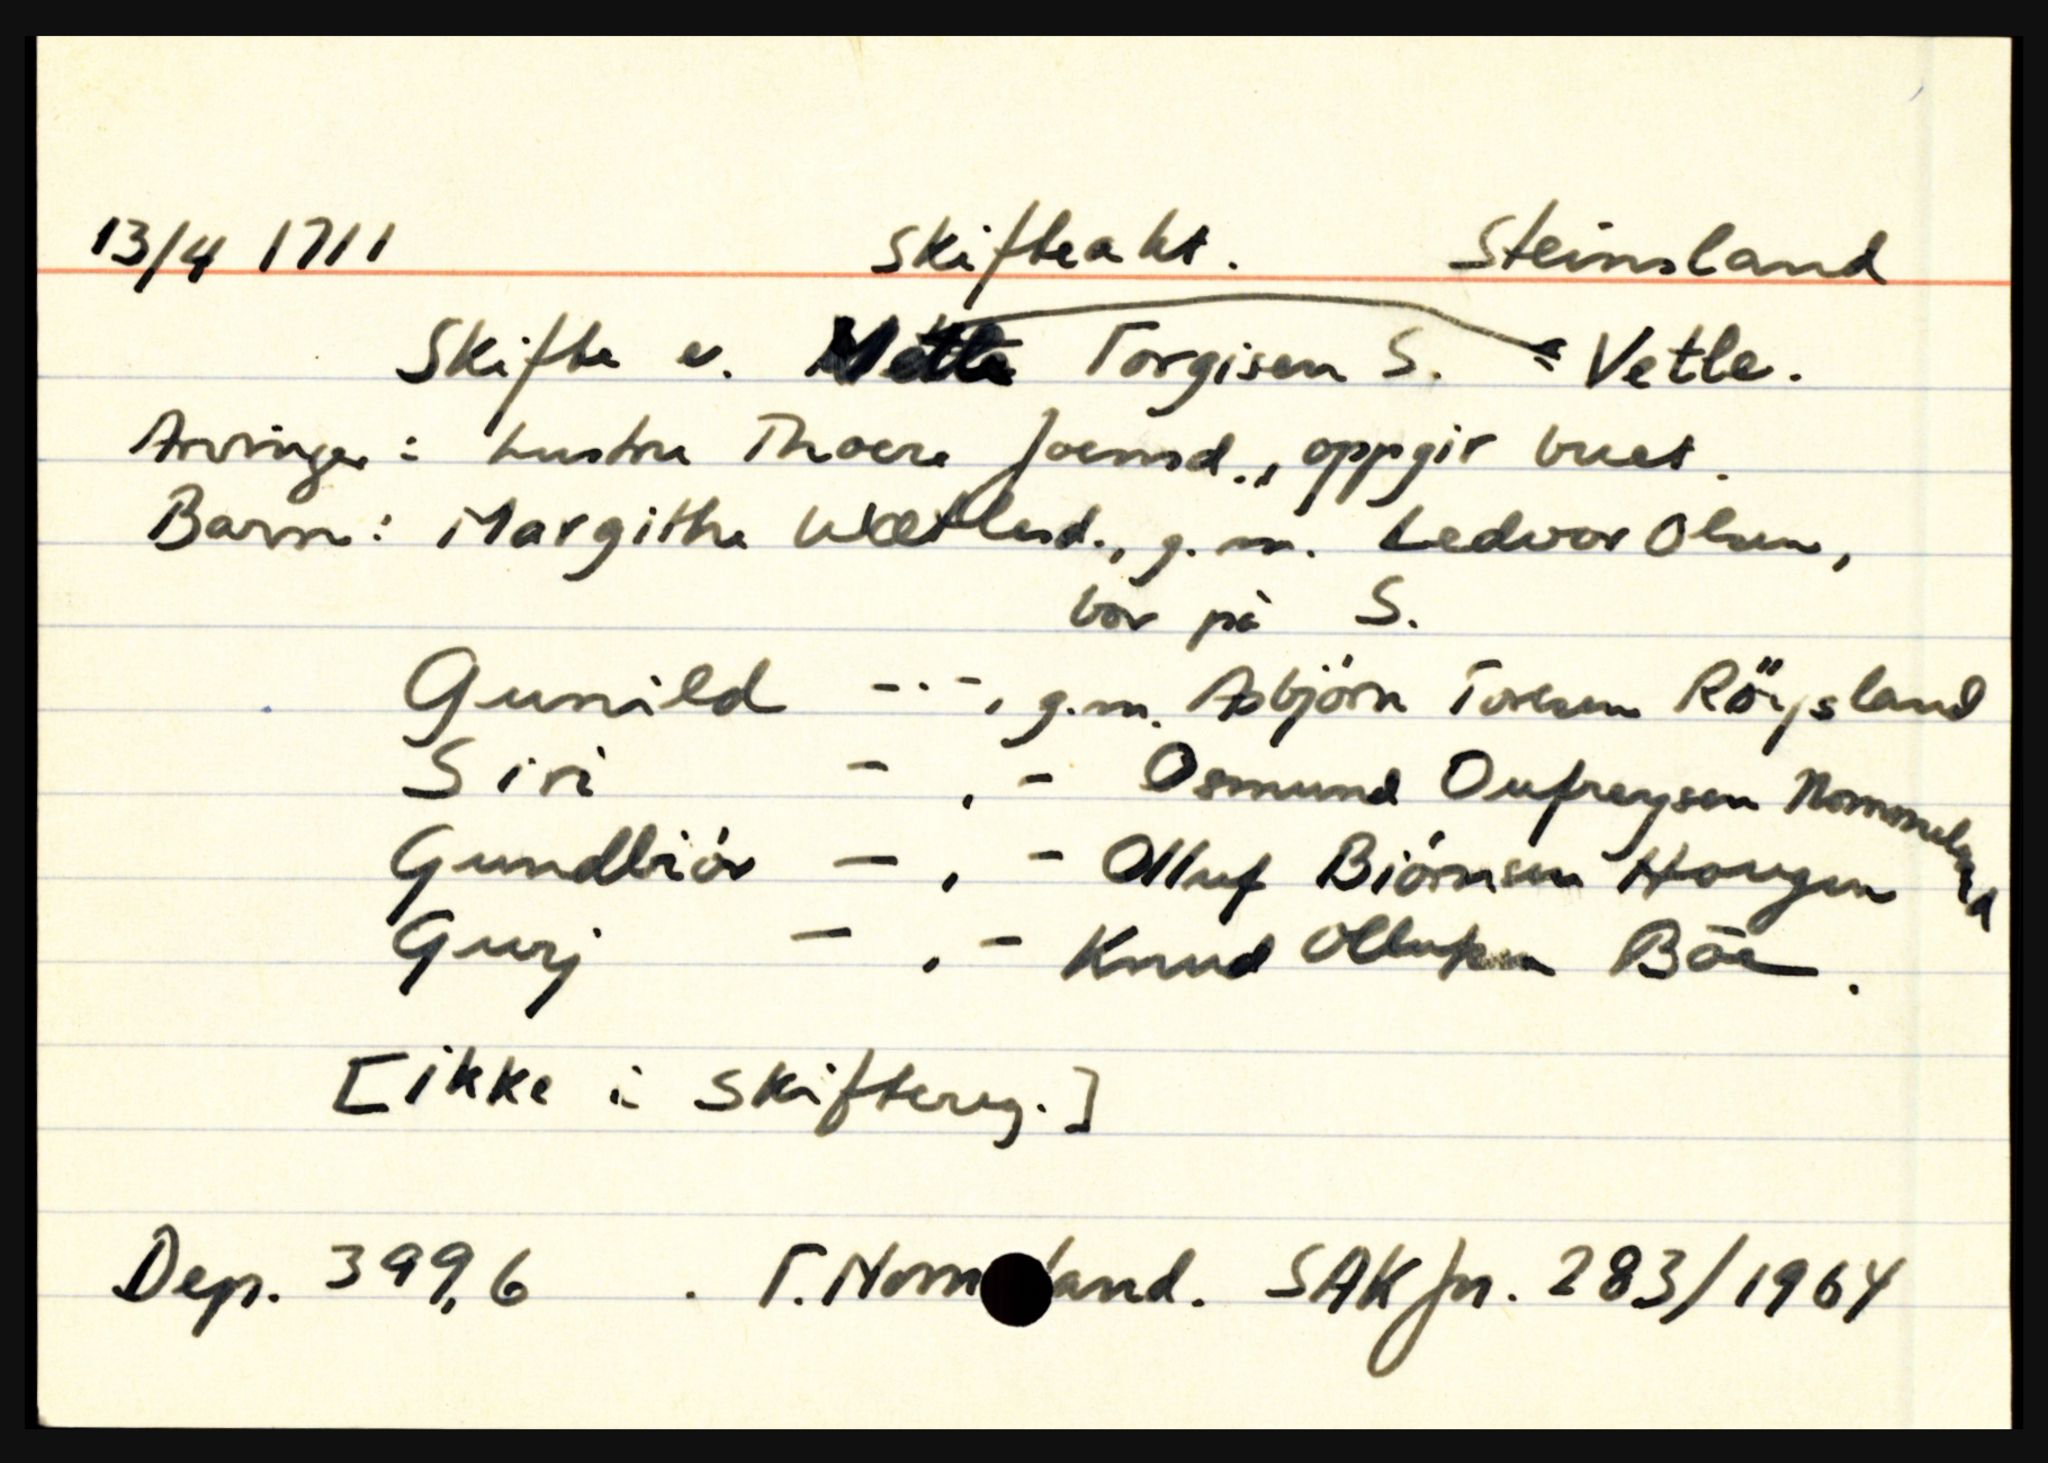 13/4 1711 Skifteakt. Steinsland
Skifte e. Vetle Torgisen S. = Vetle.
Arvinger: hustru Thoere Joensd., oppgir buet.
Barn: Margithe Wetlesd., g.m. Ledvor Olsen,
bor på S.
Gunild -.-, g.m. Asbjörn Toresen Röysland
Siri - , - Osmund Oufreysen Nommeland
Gundbiör - , - Olluf Biörnsen Hougen
Gurj - , - Knud Ollufsen Böe.
[ikke i skiftereg.]
Dep. 399,6 . T. Nom land. SAK jn. 283/1964